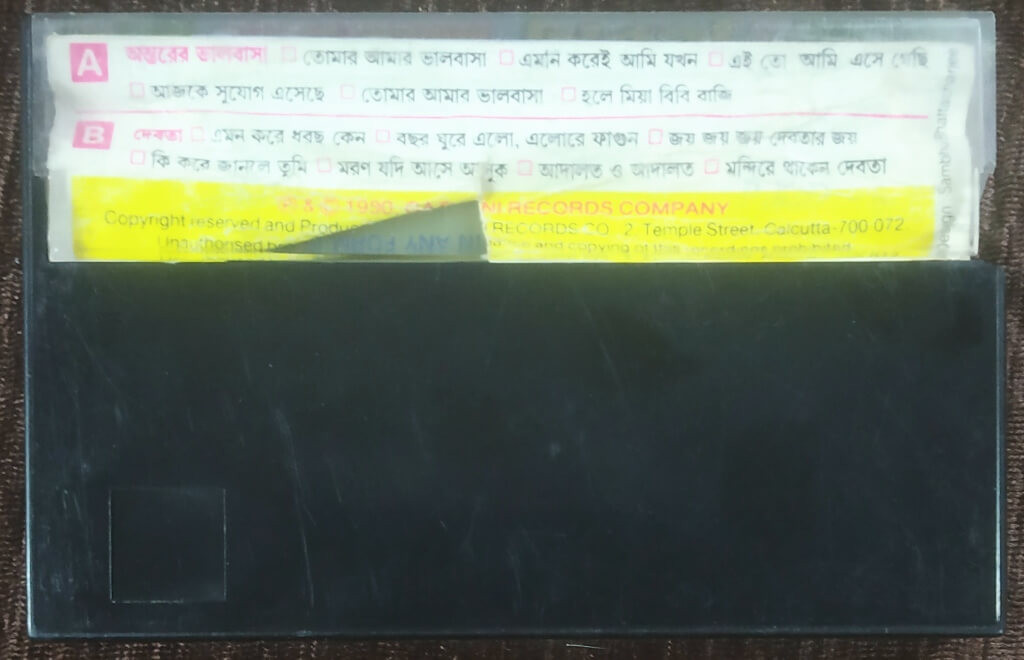 A অন্তরের ভালবাসা □ তোমার আমার ভালবাসা □ এমনি করেই আমি যখন □ এই তো আমি এসে গেছি
□ আজকে সুযোগ এসেছে □ তোমার আমার ভালবাসা □ হলে মিয়া বিবি রাজি
B দেবতা □ এমন করে ধরছ কেন □ বছর ঘুরে এলো, এলোরে ফাগুন □ জয় জয় জয় দেবতার জয়
□ কি করে জানলে তুমি □ মরণ যদি আসে আসুক □ আদালত ও আদালত □ মন্দিরে থাকেন দেবতা
1990 RECORDS COMPANY
Copyright reserved and RECORDS CO. 2, Temple Street, Calcutta-700 072
Unauthorised and copying of this prohibited
IN ANY FORM